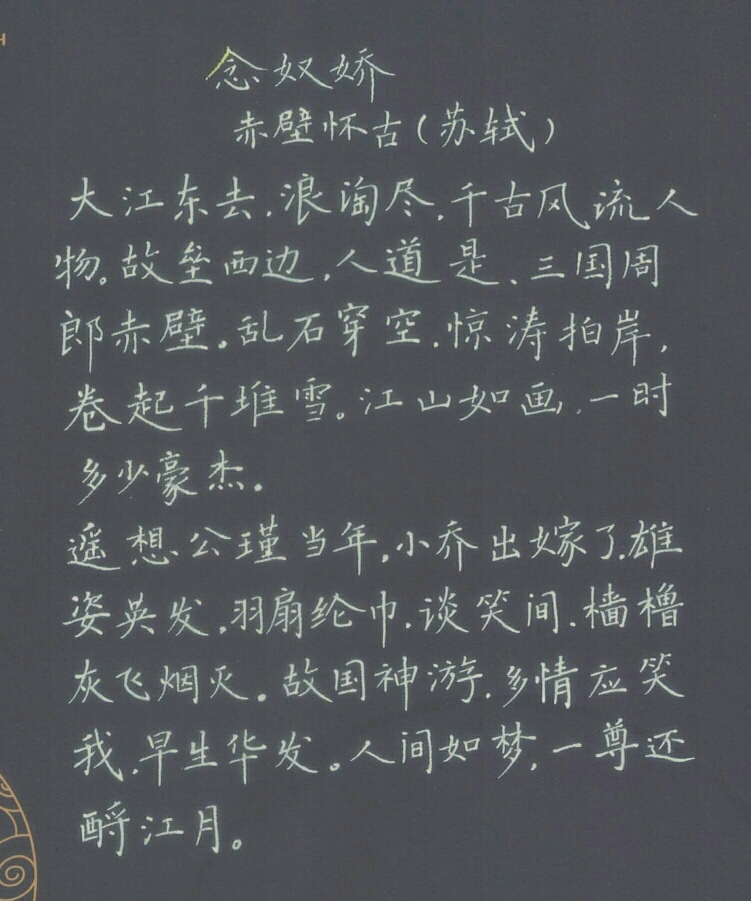 念奴娇
赤壁怀古(苏轼)
大江东去.浪淘尽.千古风流人
物。故垒西边,人道是、三国周
郎赤壁。乱石穿空.惊涛拍岸,
卷起千堆雪。江山如画,一时
多少豪杰。
遥想公瑾当年,小乔出嫁了.雄
姿英发,羽扇纶巾.谈笑间.樯橹
灰飞烟灭。故国神游.多情应笑
我.早生华发。人间如梦,一尊还
酹江月。